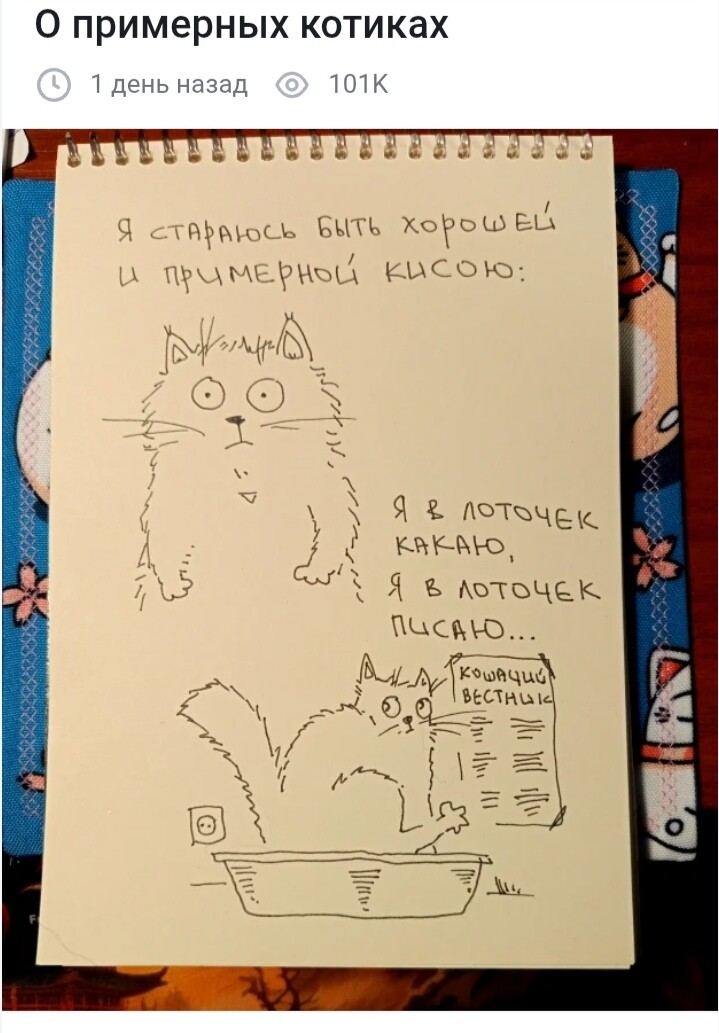 О примерных котиках
1 день назад 101K
Я СТАРАЮСЬ БЫТЬ ХОРОШЕЙ
И ПРИМЕРНОЙ КИСОЮ:
Я В ЛОТОЧЕК
КАКАЮ,
Я В ЛОТОЧЕК
ПИСАЮ...
КОШАЧИЙ
ВЕСТНИК